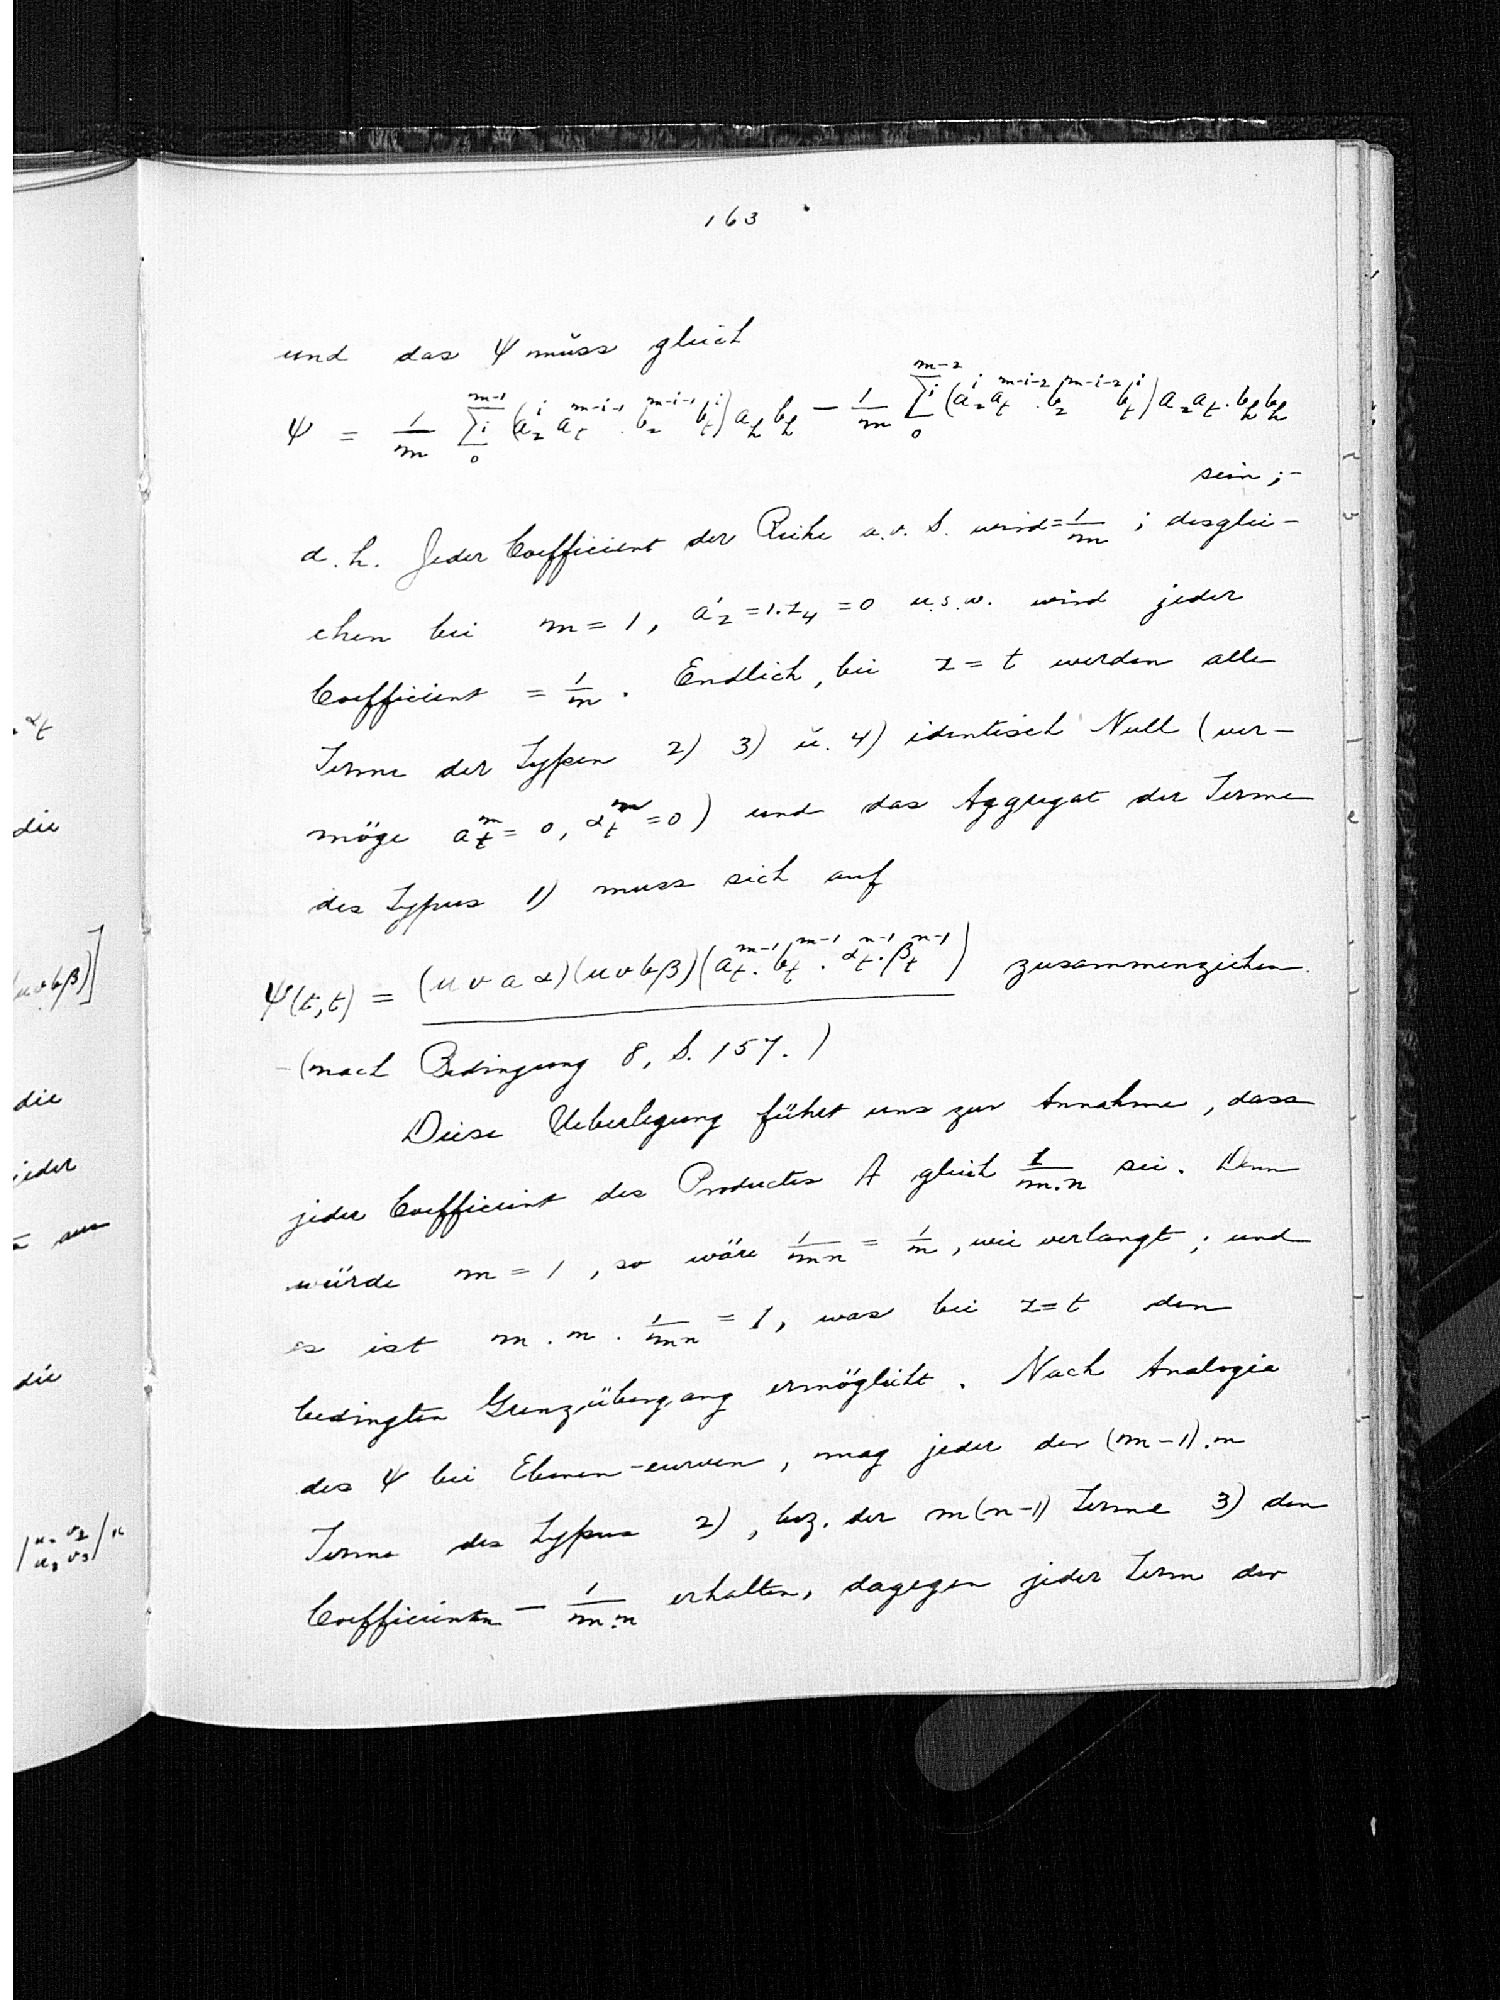 163
und das Ψ muss gleich
Ψ = 1/m Σi (a_z^i a_t^{m-i-1} . b_z^{m-i-1} b_t^i) a_h b_h − 1/m Σi (a_z^i a_t^{m-i-2} . b_z^{m-i-2} b_t^i) a_z a_t . b_h b_h
sein ;-
d. h. Jeder Coefficient der Reihe a. v. S. wird = 1/m ; desglei-
chen bei m = 1, a'_z = 1. z_4 = 0 u.s.w. wird jeder
Coefficient = 1/m . Endlich, bei z = t werden alle
Terme der Typen 2) 3) u. 4) identisch Null (ver-
möge a_t^m = 0, α_t^n = 0) und das Aggregat der Terme
des Typus 1) muss sich auf
Ψ(t,t) = (u v a α)(u v b β)(a_t^{m-1} . b_t^{m-1} . α_t^{n-1} . β_t^{n-1}) zusammenziehen.
-(nach Bedingung 8, S. 157.)
Diese Ueberlegung führt uns zur Annahme, dass
jeder Coefficient des Productes A gleich 1/m.n sei. Denn
würde m = 1, so wäre 1/mn = 1/n, wie verlangt ; und
es ist m . n . 1/mn = 1, was bei z = t den
bedingten Grenzübergang ermöglicht. Nach Analogie
des Ψ bei Ebenen-curven, mag jeder der (m-1).n
Terme des Typus 2), bez. der m(n-1) Terme 3) den
Coefficienten − 1/m.n erhalten, dagegen jeder Term der
α_t
die
(u v b β)]
die
jeder
die
| u_2 v_2 |
| u_3 v_3 |